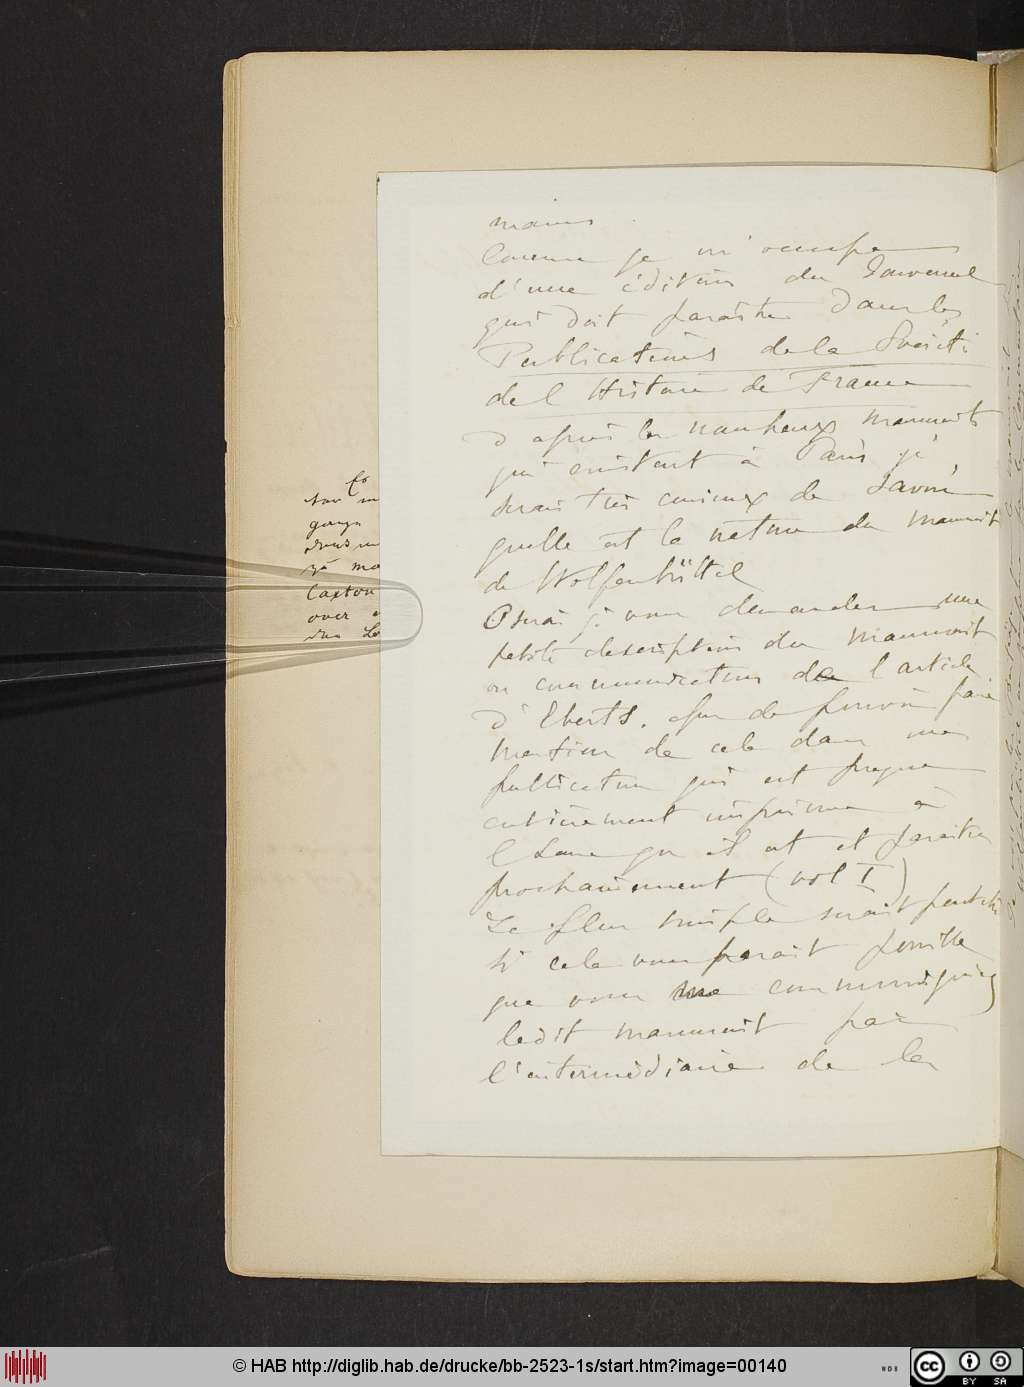 mains
Comme je m'occupe
d'une édition du Jouvencel
qui doit paraître dans les
Publications de la Société
de l'Histoire de France
d'après les nombreux manuscrits
qui existent à Paris je
serais très curieux de savoir
quelle est la nature du manuscrit
de Wolfenbüttel
Oserai je vous demander une
petite description du manuscrit
ou communication de l'article
d'Eberts. afin de pouvoir faire
mention de cela dans ma
publication qui est presque
entièrement imprimée à
l'heure qu'il est et paraîtra
prochainement (vol I)
Le plus simple serait peut être
si cela vous parait possible
que vous me communiquiez
ledit manuscrit par
l'intermédiaire de la
Caxton
over
© HAB http://diglib.hab.de/drucke/bb-2523-1s/start.htm?image=00140
WDB
cc
BY SA